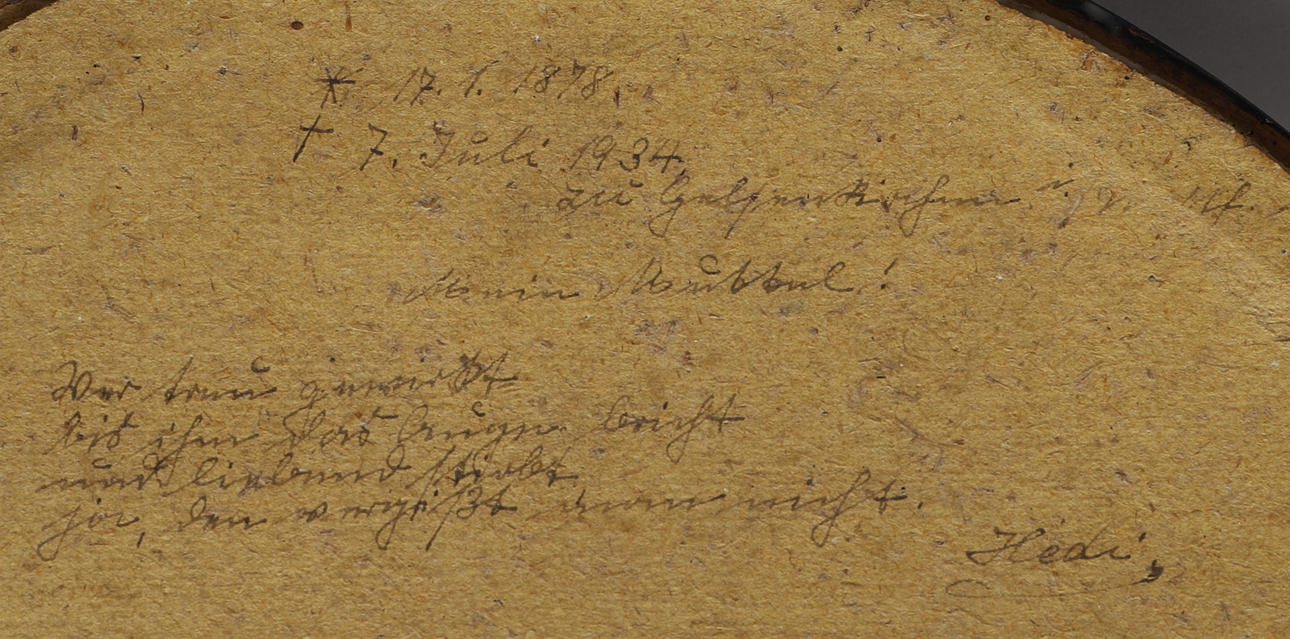 * 17. 1. 1878.
† 7. Juli 1934.
zu Gelsenkirchen i.
Mein Muttel!
Wer treu gewirkt
bis ihm das Auge bricht
und liebend stirbt
ja, den vergißt man nicht.
Hedi,